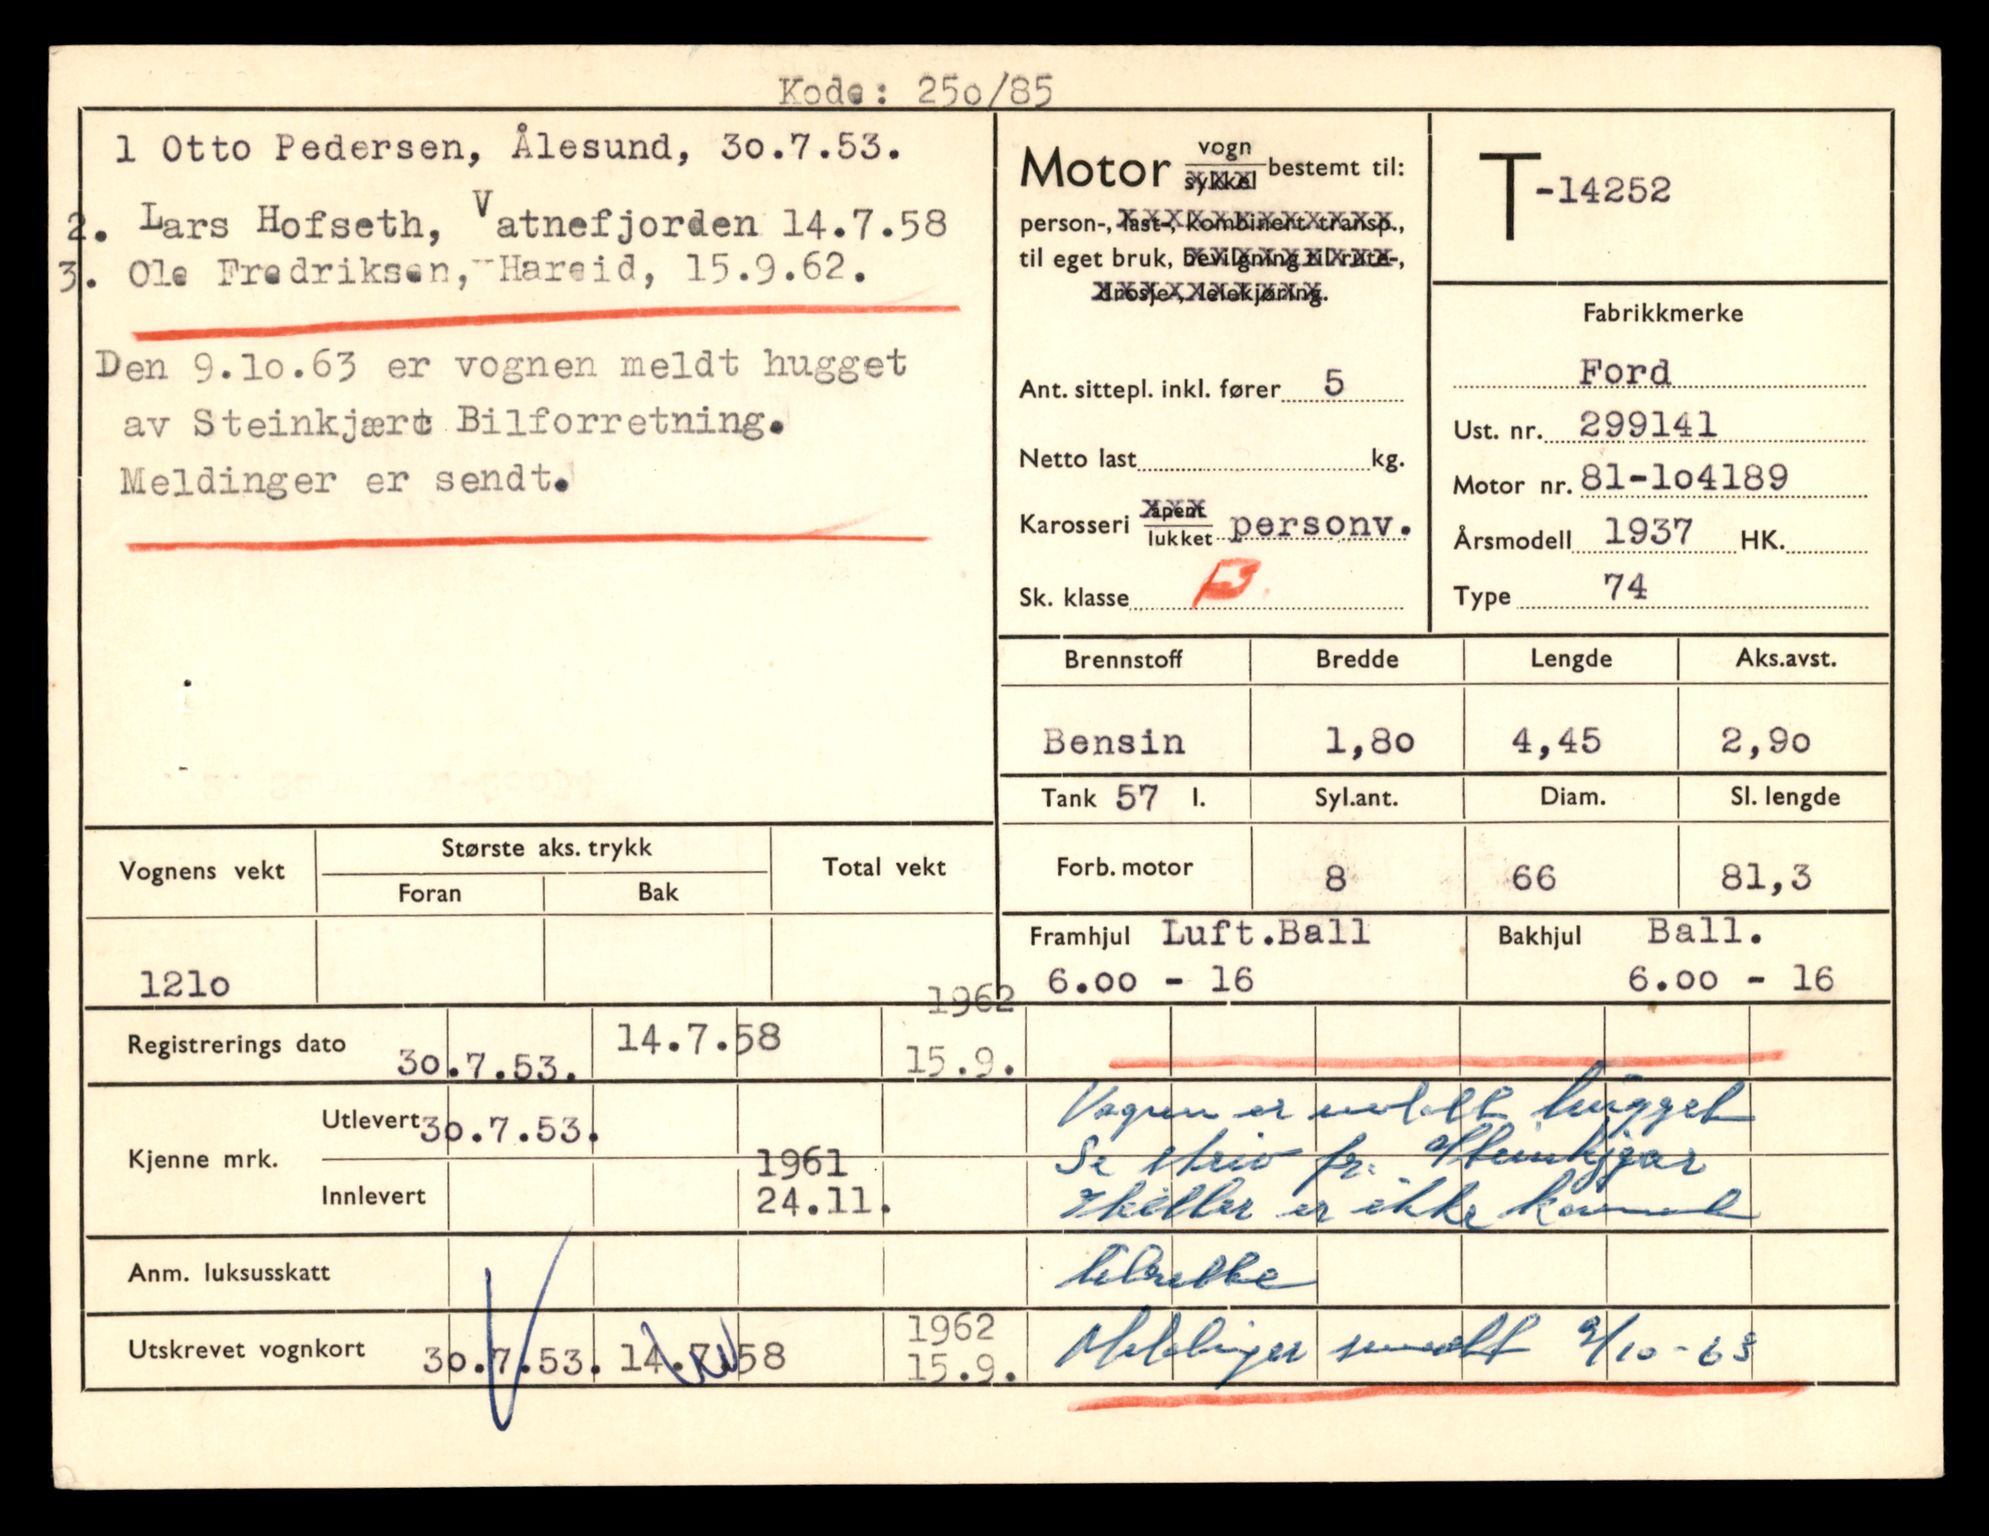 Kode: 25o/85
1 Otto Pedersen, Ålesund, 3o.7.53.
2. Lars Hofseth, Vatnefjorden 14.7.58
3. Ole Fredriksen, Hareid, 15.9.62.
Den 9.1o.63 er vognen meldt hugget
av Steinkjær Bilforretning.
Meldinger er sendt.
Motor vogn/sykkel bestemt til:
person-, last-, kombinert transp.,
til eget bruk, bevilgning til rute-,
drosje-, leiekjøring.
Ant. sittepl. inkl. fører 5
Netto last kg.
Karosseri åpent/lukket personv.
Sk. klasse
T-14252
Fabrikkmerke
Ford
Ust. nr. 299141
Motor nr. 81-1o4189
Årsmodell 1937 HK.
Type 74
Brennstoff Bredde Lengde Aks.avst.
Bensin 1,8o 4,45 2,9o
Tank 57 l. Syl.ant. Diam. Sl. lengde
Forb. motor 8 66 81,3
Framhjul Luft.Ball Bakhjul Ball.
6.oo - 16 6.oo - 16
Vognens vekt Største aks. trykk Total vekt
Foran Bak
121o
1962
Registrerings dato 3o.7.53. 14.7.58 15.9.
Kjenne mrk. Utlevert 3o.7.53.
Innlevert 1961
24.11.
Vognen er meldt hugget
Se skriv fr. Steinkjær
Skilter er ikke kommet
tilbake
Anm. luksusskatt
Utskrevet vognkort 3o.7.53. 14.7.58 1962
15.9.
Meldinger sendt 9/10-63